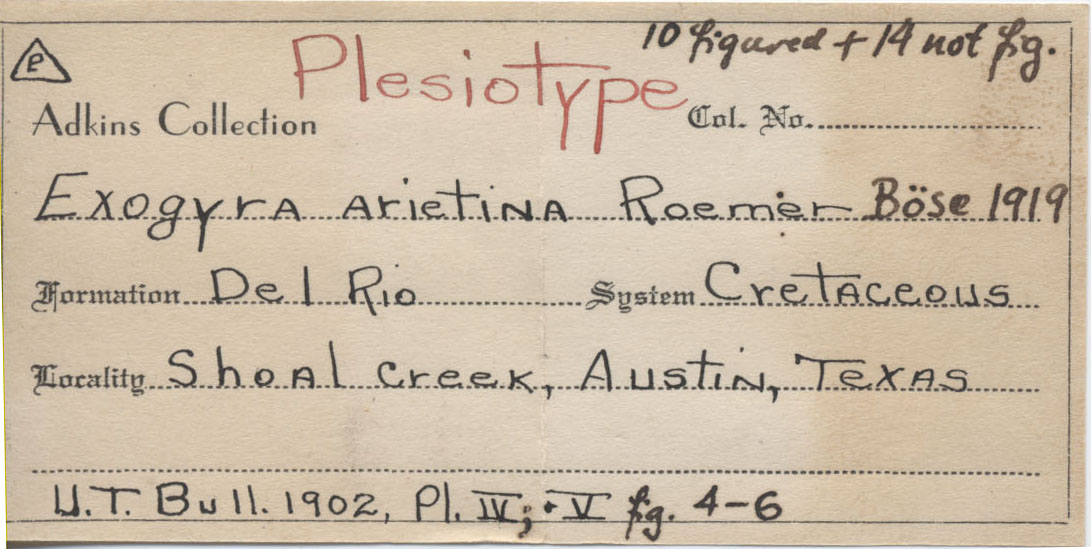 10 figured + 14 not fig.
P
Plesiotype
Adkins Collection Col. No.
Exogyra arietina Roemer Böse 1919
Formation Del Rio System Cretaceous
Locality Shoal Creek, Austin, Texas
U.T. Bull. 1902, Pl. IV; + V fig. 4-6